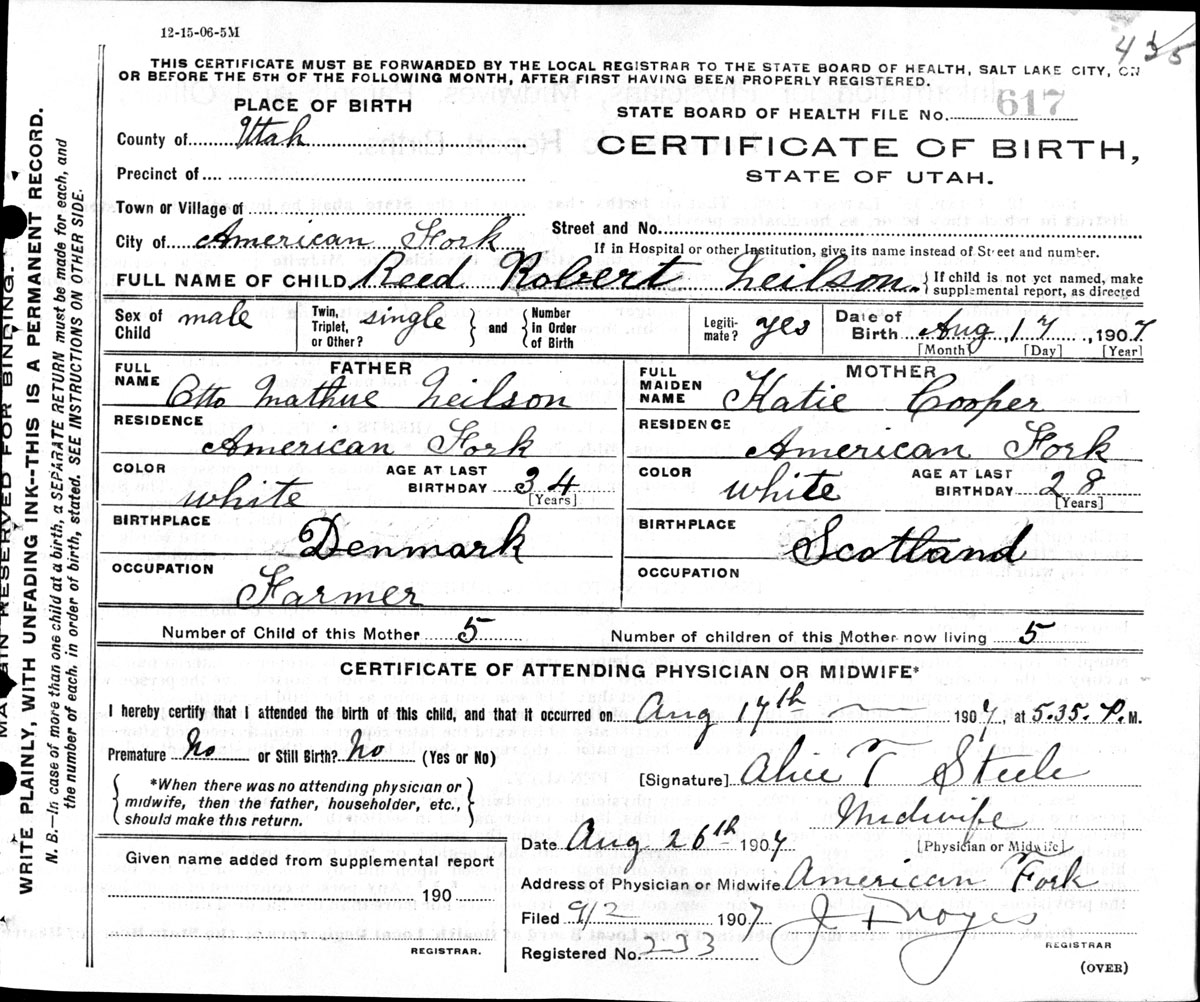 12-15-06-5M
435
THIS CERTIFICATE MUST BE FORWARDED BY THE LOCAL REGISTRAR TO THE STATE BOARD OF HEALTH, SALT LAKE CITY, ON
OR BEFORE THE 5TH OF THE FOLLOWING MONTH, AFTER FIRST HAVING BEEN PROPERLY REGISTERED.
PLACE OF BIRTH
STATE BOARD OF HEALTH FILE No. 617
County of Utah
CERTIFICATE OF BIRTH,
STATE OF UTAH.
Precinct of
Town or Village of
Street and No.
City of American Fork
If in Hospital or other Institution, give its name instead of Street and number.
FULL NAME OF CHILD Reed Robert Neilson { If child is not yet named, make
supplemental report, as directed
Sex of Child male Twin, Triplet, or Other? single } and { Number in Order of Birth Legiti-mate? yes Date of Birth Aug, 17, 1907
[Month] [Day] [Year]
FATHER
MOTHER
FULL NAME Otto Mathue Neilson
FULL MAIDEN NAME Katie Cooper
RESIDENCE American Fork
RESIDENCE American Fork
COLOR white AGE AT LAST BIRTHDAY 34 [Years]
COLOR white AGE AT LAST BIRTHDAY 28 [Years]
BIRTHPLACE Denmark
BIRTHPLACE Scotland
OCCUPATION Farmer
OCCUPATION
Number of Child of this Mother 5 Number of children of this Mother now living 5
CERTIFICATE OF ATTENDING PHYSICIAN OR MIDWIFE*
I hereby certify that I attended the birth of this child, and that it occurred on Aug 17th 1907, at 5.35. P. M.
Premature? No or Still Birth? No (Yes or No)
[Signature] Alice T Steele
*When there was no attending physician or
midwife, then the father, householder, etc.,
should make this return.
Midwife
[Physician or Midwife]
Date Aug 26th 1907
Given name added from supplemental report
190
REGISTRAR.
Address of Physician or Midwife American Fork
Filed 9/2 1907 Noyes
Registered No. 233
REGISTRAR
(OVER)
MARGIN RESERVED FOR BINDING.
WRITE PLAINLY, WITH UNFADING INK--THIS IS A PERMANENT RECORD.
N. B.—In case of more than one child at a birth, a SEPARATE RETURN must be made for each, and
the number of each, in order of birth, stated. SEE INSTRUCTIONS ON OTHER SIDE.